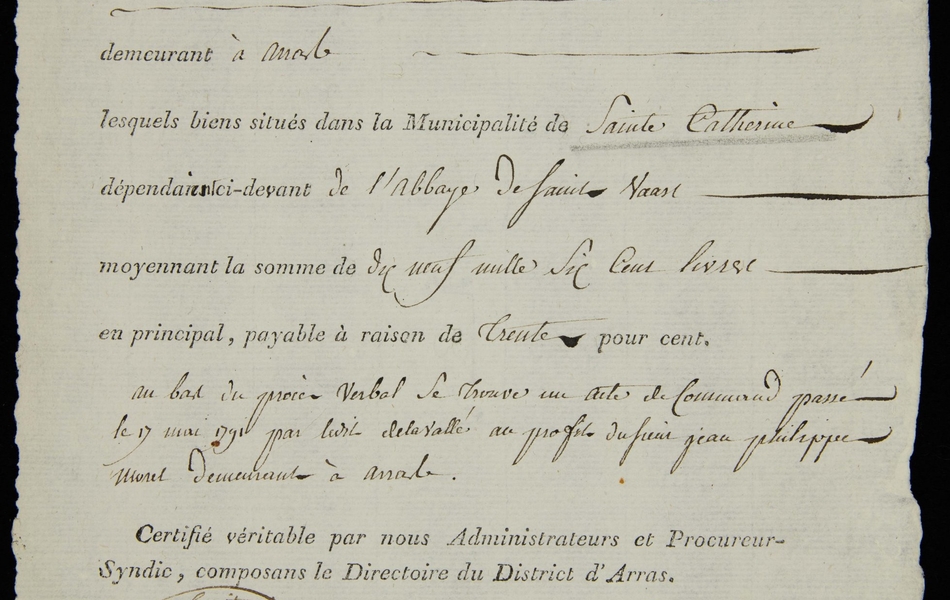 demeurant à arras
lesquels biens situés dans la Municipalité de Sainte Catherine
dépendaient ci-devant de l'abbaye de Saint Vaast
moyennant la somme de dix neuf mille Six Cent livres
en principal, payable à raison de trente pour cent.
au bas du procès Verbal se trouve un acte de Command passé
le 17 mai 1791 par ledit delavallé au profit du sieur jean philippe
Moret demeurant à arras.
Certifié véritable par nous Administrateurs et Procureur-
Syndic, composans le Directoire du District d'Arras.